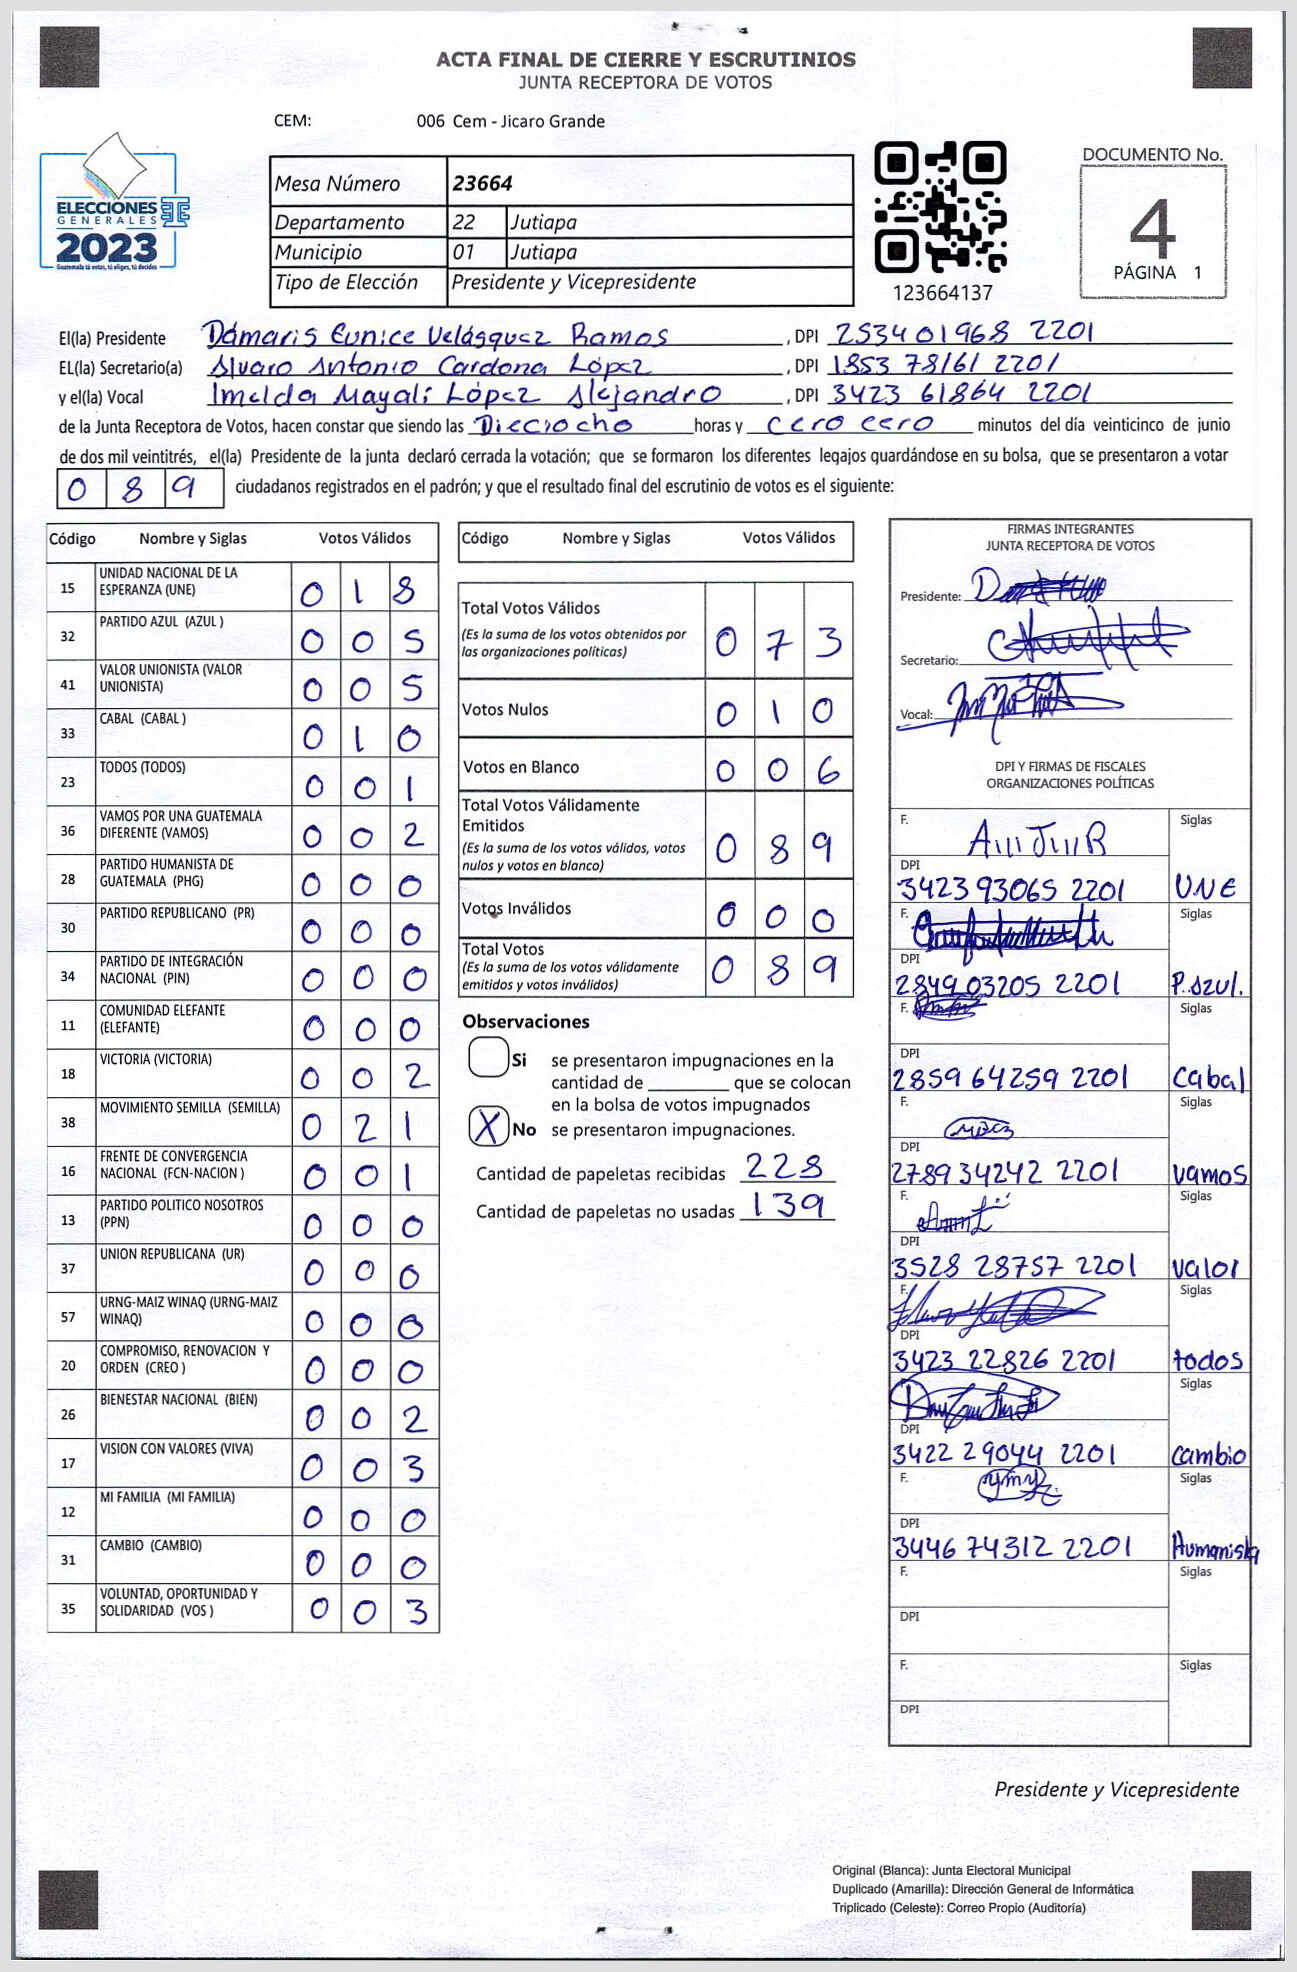 ACTA FINAL DE CIERRE Y ESCRUTINIOS
JUNTA RECEPTORA DE VOTOS
CEM: 006 Cem - Jicaro Grande
ELECCIONES
GENERALES
2023
Guatemala tú votas, tú eliges, tú decides
Mesa Número 23664
Departamento 22 Jutiapa
Municipio 01 Jutiapa
Tipo de Elección Presidente y Vicepresidente
123664137
DOCUMENTO No.
4
PÁGINA 1
El(la) Presidente Dámaris Eunice Velásquez Ramos, DPI 253401968 2201
EL(la) Secretario(a) Alvaro Antonio Cardona López, DPI 1853 78161 2201
y el(la) Vocal Imelda Mayalí López Alejandro, DPI 3423 61864 2201
de la Junta Receptora de Votos, hacen constar que siendo las Dieciocho horas y cero cero minutos del día veinticinco de junio
de dos mil veintitrés, el(la) Presidente de la junta declaró cerrada la votación; que se formaron los diferentes legajos guardándose en su bolsa, que se presentaron a votar
0 8 9 ciudadanos registrados en el padrón; y que el resultado final del escrutinio de votos es el siguiente:
Código Nombre y Siglas Votos Válidos
15 UNIDAD NACIONAL DE LA
ESPERANZA (UNE) 0 1 8
32 PARTIDO AZUL (AZUL ) 0 0 5
41 VALOR UNIONISTA (VALOR
UNIONISTA) 0 0 5
33 CABAL (CABAL ) 0 1 0
23 TODOS (TODOS) 0 0 1
36 VAMOS POR UNA GUATEMALA
DIFERENTE (VAMOS) 0 0 2
28 PARTIDO HUMANISTA DE
GUATEMALA (PHG) 0 0 0
30 PARTIDO REPUBLICANO (PR) 0 0 0
34 PARTIDO DE INTEGRACIÓN
NACIONAL (PIN) 0 0 0
11 COMUNIDAD ELEFANTE
(ELEFANTE) 0 0 0
18 VICTORIA (VICTORIA) 0 0 2
38 MOVIMIENTO SEMILLA (SEMILLA) 0 2 1
16 FRENTE DE CONVERGENCIA
NACIONAL (FCN-NACION ) 0 0 1
13 PARTIDO POLITICO NOSOTROS
(PPN) 0 0 0
37 UNION REPUBLICANA (UR) 0 0 0
57 URNG-MAIZ WINAQ (URNG-MAIZ
WINAQ) 0 0 0
20 COMPROMISO, RENOVACION Y
ORDEN (CREO ) 0 0 0
26 BIENESTAR NACIONAL (BIEN) 0 0 2
17 VISION CON VALORES (VIVA) 0 0 3
12 MI FAMILIA (MI FAMILIA) 0 0 0
31 CAMBIO (CAMBIO) 0 0 0
35 VOLUNTAD, OPORTUNIDAD Y
SOLIDARIDAD (VOS ) 0 0 3
Código Nombre y Siglas Votos Válidos
Total Votos Válidos
(Es la suma de los votos obtenidos por
las organizaciones políticas) 0 7 3
Votos Nulos 0 1 0
Votos en Blanco 0 0 6
Total Votos Válidamente
Emitidos
(Es la suma de los votos válidos, votos
nulos y votos en blanco) 0 8 9
Votos Inválidos 0 0 0
Total Votos
(Es la suma de los votos válidamente
emitidos y votos inválidos) 0 8 9
Observaciones
Si se presentaron impugnaciones en la
cantidad de ________ que se colocan
en la bolsa de votos impugnados
X No se presentaron impugnaciones.
Cantidad de papeletas recibidas 228
Cantidad de papeletas no usadas 139
FIRMAS INTEGRANTES
JUNTA RECEPTORA DE VOTOS
Presidente:
Secretario:
Vocal:
DPI Y FIRMAS DE FISCALES
ORGANIZACIONES POLÍTICAS
F. Siglas
DPI
3423 93065 2201 UNE
F. Siglas
DPI
2849 03205 2201 P. Azul.
F. Siglas
DPI
2859 64259 2201 Cabal
F. Siglas
DPI
2789 34242 2201 vamos
F. Siglas
DPI
3528 28757 2201 valor
F. Siglas
DPI
3423 22826 2201 todos
F. Siglas
DPI
3422 29044 2201 cambio
F. Siglas
DPI
3446 74312 2201 Humanista
F. Siglas
DPI
F. Siglas
DPI
Presidente y Vicepresidente
Original (Blanca): Junta Electoral Municipal
Duplicado (Amarilla): Dirección General de Informática
Triplicado (Celeste): Correo Propio (Auditoría)